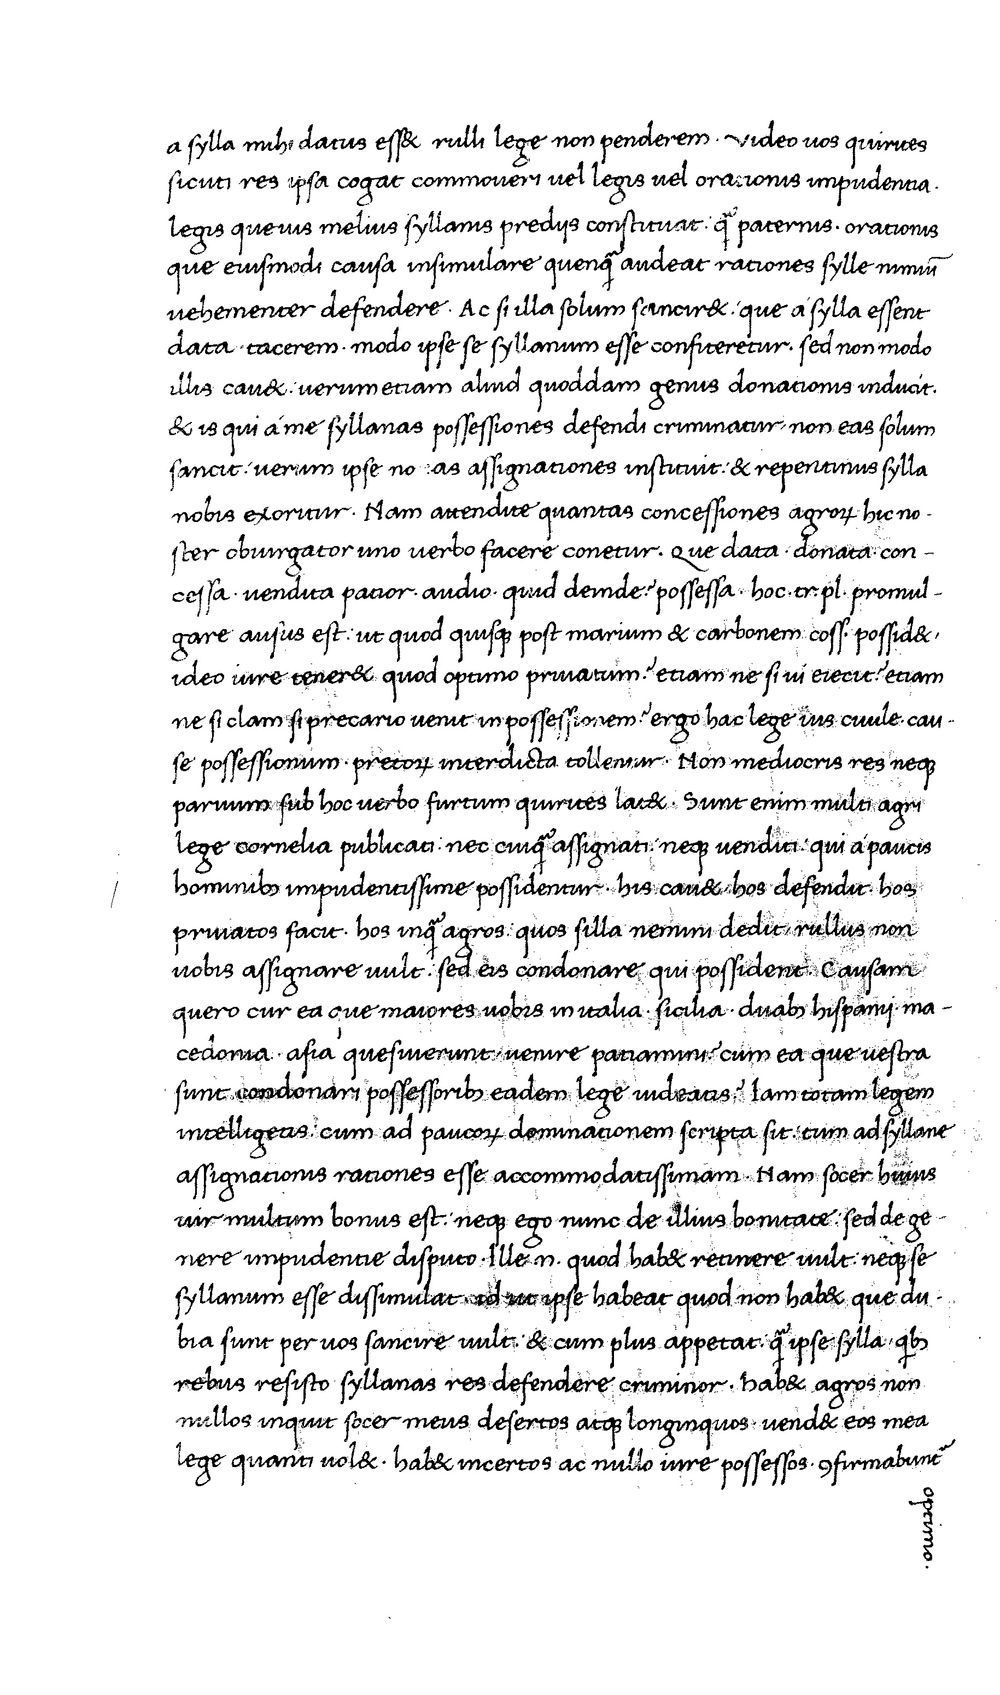 a sylla mihi datus ess& rulli lege non penderem · Video uos quirites
sicuti res ipsa cogat commoueri uel legis uel orationis impudentia ·
legis que uis melius syllanis predijs constituat : qͣ paternis · orationis
que eiusmodi causa insimulare quenqͣ audeat rationes sylle nimiū
uehementer defendere · Ac si illa solum sancir& : que á sylla essent
data · tacerem · modo ipse se syllanum esse confiteretur · sed non modo
illis cau& : uerum etiam aliud quoddam genus donationis inducit ·
& is qui á me syllanas possessiones defendi criminatur · non eas solum
sancit : uerum ipse no as assignationes instituit : & repentinus sylla
nobis exoritur · Nam attendite quantas concessiones agroꝝ hic no-
ster obiurgator uno uerbo facere conetur · Que data · donata · con-
cessa · uendita patior · audio · quid deinde? possessa · hoc · tr · pl · promul-
gare ausus est : ut quod quisqꝫ post marium & carbonem coss · possid& ·
ideo iure tener& quod optimo priuatum? etiam ne si ui eiecit? etiam
ne si clam si precario uenit in possessionem? ergo hac lege ius ciuile · cau-
se possessionum · pretoꝝ interdicta tollentur · Non mediocris res neqꝫ
paruum sub hoc uerbo furtum quirites lat& · Sunt enim multi agri
lege cornelia publicati · nec cuiqͣ assignati : neqꝫ uenditi : qui á paucis
hominibꝫ impudentissime possidentur · his cau& · hos defendit · hos
priuatos facit · hos inqͣ agros : quos silla nemini dedit · rullus non
uobis assignare uult : sed eis condonare qui possident · Causam
quero cur ea que maiores uobis in italia · sicilia · duabꝫ hispanij · ma-
cedonia · asia quesiuerunt · uenire patiamini? cum ea que uestra
sunt condonari possessoribꝫ eadem lege uideatis? Iam totam legem
intelligetis : cum ad paucoꝝ dominationem scripta sit : tum ad syllane
assignationis rationes esse accommodatissimam · Nam socer huius
uir multum bonus est : neqꝫ ego nunc de illius bonitate : sed de ge-
nere impudentie disputo · Ille · n · quod hab& retinere uult : neqꝫ se
syllanum esse dissimulat · id ut ipse habeat quod non hab& que du-
bia sunt per uos sancire uult : & cum plus appetat : qͣ ipse sylla · qͥbꝫ
rebus resisto syllanas res defendere criminor · Hab& agros non
nullos inquit socer meus desertos atqꝫ longinquos · uend& eos mea
lege quanti uol& · hab& incertos ac nullo iure possessos · ꝯfirmabunt᷑
optimo ·